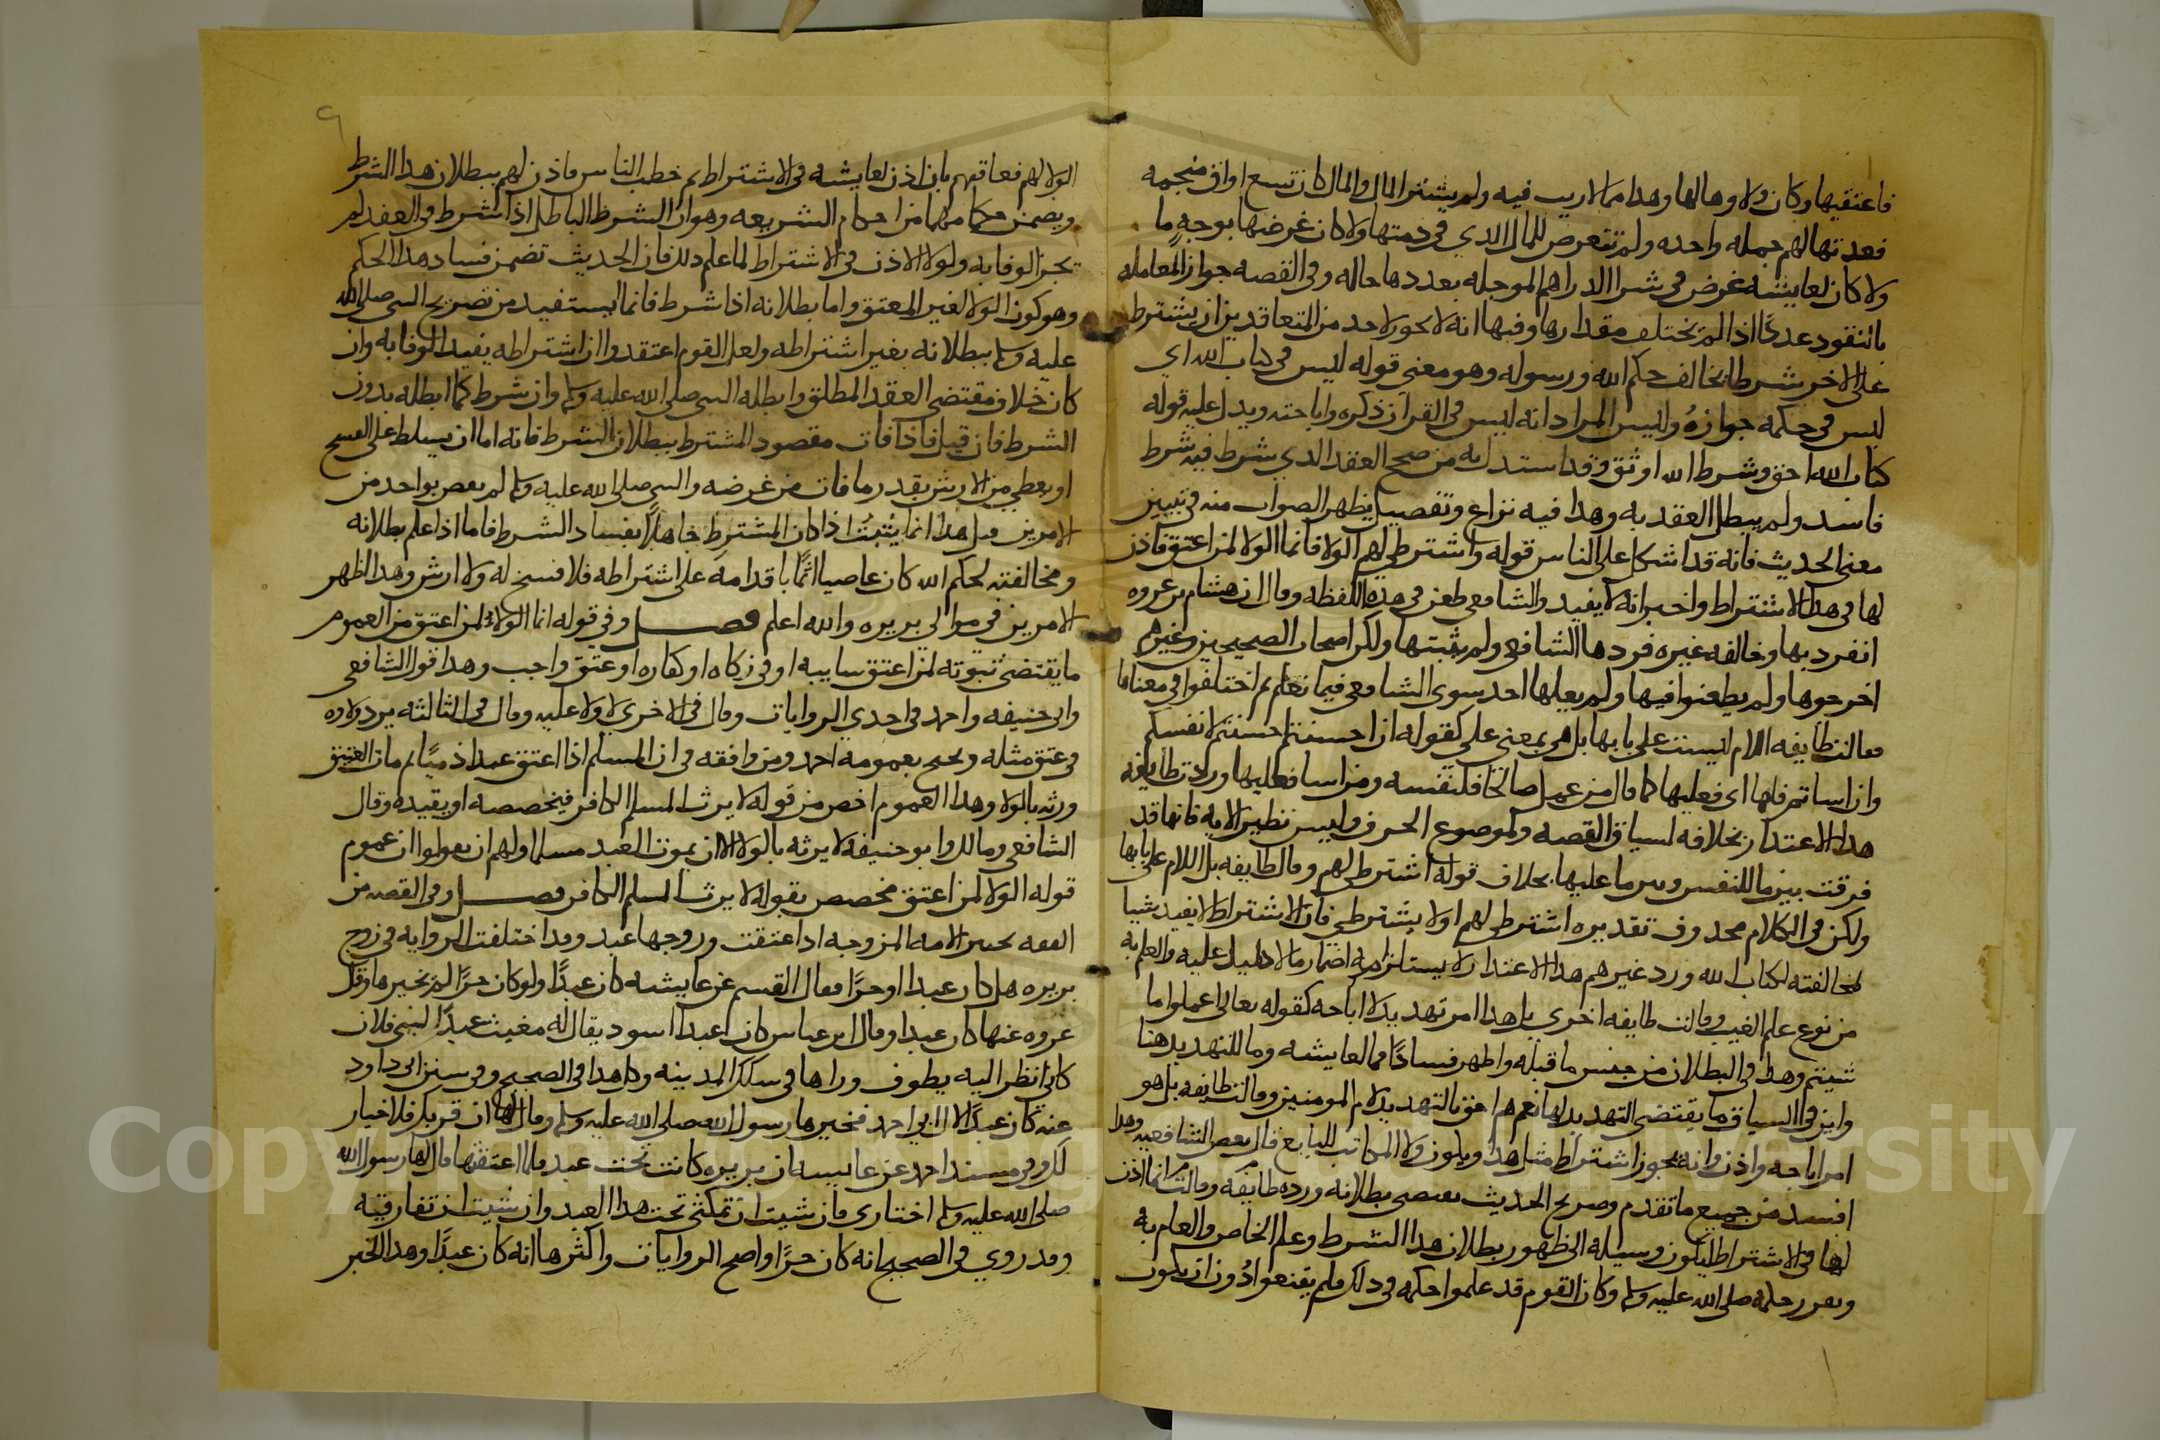 فاعتقيها وكان ولاوها لها وهدا مما لا ريب فيه ولم يشتر المال والمال كان تسع اواق منجمه
فعدتها لهم جمله واحده ولم تتعرض للمال الدي في دمتها ولا كان غرضها بوجه ما
ولا كان لعايشه غرض في شرا الدراهم الموجله بعددها حاله وفي القصه جواز المعامله
بالنقود عددًا اذا لم يختلف مقدارها وفيها انه لا يجوز لاحد من المتعاقدين ان يشترط
على الاخر شرطا يخالف حكم الله ورسوله وهو معنى قوله ليس في كتاب الله اي
ليس في حكمه جوازه وليس المراد انه ليس في القرآن ذكره واباحته ويدل عليه قوله
كتاب الله احق وشرط الله اوثق وقد استدل به من صحح العقد الدي شرط فيه شرط
فاسد ولم يبطل العقد به وهدا فيه نزاع وتفصيل يظهر الصواب منه في تبيين
معنى الحديث فانه قد اشكل على الناس قوله واشترطي لهم الولا فانما الولا لمن اعتق فاذن
لها في هدا الاشتراط واخبر انه لا يفيد والشافعي طعن في هده اللفظه وقال ان هشام بن عروه
انفرد بها وخالفه غيره فردها الشافعي ولم يثبتها ولكن اصحاب الصحيحين وغيرهم
اخرجوها ولم يطعنوا فيها ولم يعلها احد سوى الشافعي فيما نعلم ثم اختلفوا في معناها
فقالت طايفه اللام ليست على بابها بل هي بمعنى على كقوله ان احسنتم احسنتم لانفسكم
وان اساتم فلها اي فعليها كما قال من عمل صالحا فلنفسه ومن اسا فعليها وردت طايفه
هدا الاعتدار بخلافه لسياق القصه ولموضوع الحرف وليس نظير الايه فانها قد
فرقت بين ما للنفس وبين ما عليها بخلاف قوله اشترطي لهم وقال طايفه بل اللام على بابها
ولكن في الكلام محدوف تقديره اشترطي لهم او لا يشترطي فان الاشتراط لا يفيد شيا
لمخالفته لكتاب الله ورد غيرهم هدا الاعتدار لاستلزامه اضمار ما لا دليل عليه والعلم به
من نوع علم الغيب وقالت طايفه اخرى بل هدا امر تهديد لا اباحه كقوله تعالى اعملوا ما
شيتم وهدا في البطلان من جنس ما قبله واظهر فسادًا فما لعايشه وما للتهديد هنا
واين في السياق ما يقتضي التهديد لها نعم هم احق بالتهديد لا ام المومنين وقالت طايفه بل هو
امر اباحه واذن وانه يجوز اشتراط مثل هدا ويكون ولا المكاتب للبايع قال بعض الشافعيه وهدا
افسد من جميع ما تقدم وصريح الحديث يقتضي بطلانه ورده طايفه وقالت انما اذن
لها في الاشتراط ليكون وسيله الى ظهور بطلان هدا الشرط وعلم الخاص والعام به
وتقرر حكمه صلى الله عليه وسلم وكان القوم قد علموا حكمه في دلك فلم يقنعوا دون ان يكون
الولا لهم فعاقبهم بان اذن لعايشه في الاشتراط ثم خطب الناس فاذن لهم ببطلان هدا الشرط
ويضمن حكما من احكام الشريعه وهو ان الشرط الباطل اذا شرط في العقد لم
يجز الوفا به ولولا الاذن في الاشتراط لما علم دلك فان الحديث تضمن فساد هدا الحكم
وهو كون الولا لغير المعتق واما بطلانه اذا شرط فانما يستفيد من تصريح النبي صلى الله
عليه وسلم ببطلانه بغير اشتراطه ولعل القوم اعتقدوا ان اشتراطه يفيد الوفا به وان
كان خلاف مقتضى العقد المطلق وابطله النبي صلى الله عليه وسلم وان شرط كما ابطله بدون
الشرط فان قيل فاذا فات مقصود المشترط ببطلان الشرط فانه اما ان يسلط على الفسخ
او يعطى من الارش بقدر ما فات من غرضه والنبي صلى الله عليه وسلم لم يقض بواحد من
الامرين قيل هدا انما يثبت اذا كان المشترط جاهلًا بفساد الشرط فاما اذا علم بطلانه
ومخالفته لحكم الله كان عاصيا اثمًا باقدامه على اشتراطه فلا فسخ له ولا ارش وهدا اظهر
الامرين في موالي بريره والله اعلم فصل وفي قوله انما الولا لمن اعتق من العموم
ما يقتضي ثبوته لمن اعتق سايبه او في زكاه او كفاره او عتق واجب وهدا قول الشافعي
وابي حنيفه واحمد في احدى الروايات وقال في الاخرى لا ولا عليه وقال في الثالثه يرد ولاوه
في عتق مثله ويحتج بعمومه احمد ومن وافقه في ان المسلم اذا اعتق عبدا ذميًا ثم مات العتيق
ورثه بالولا وهدا العموم اخص من قوله لا يرث المسلم الكافر فيخصصه او يقيده وقال
الشافعي ومالك وابو حنيفه لا يرثه بالولا الا ان يموت العبد مسلما ولهم ان يقولوا ان عموم
قوله الولا لمن اعتق مخصص بقوله لا يرث المسلم الكافر فصل وفي القصه من
الفقه تخيير الامه المزوجه اذا عتقت وزوجها عبد وقد اختلفت الروايه في زوج
بريره هل كان عبدا او حرًا فقال القسم عن عايشه كان عبدًا ولو كان حرًا لم يخيرها وقال
عروه عنها كان عبدا وقال ابن عباس كان عبدا اسود يقال له مغيث عبدًا لبني فلان
كاني انظر اليه يطوف وراها في سكك المدينه وكل هدا في الصحيح وفي سنن ابي داود
عنه كان عبدًا لال ابي احمد فخيرها رسول الله صلى الله عليه وسلم وقال لها ان قربك فلا خيار
لك وفي مسند احمد عن عايشه ان بريره كانت تحت عبد فلما اعتقتها قال لها رسول الله
صلى الله عليه وسلم اختاري فان شيت ان تمكثي تحت هدا العبد وان شيت ان تفارقيه
وقد روي في الصحيح انه كان حرًا واصح الروايات واكثرها انه كان عبدًا وهدا الخبر